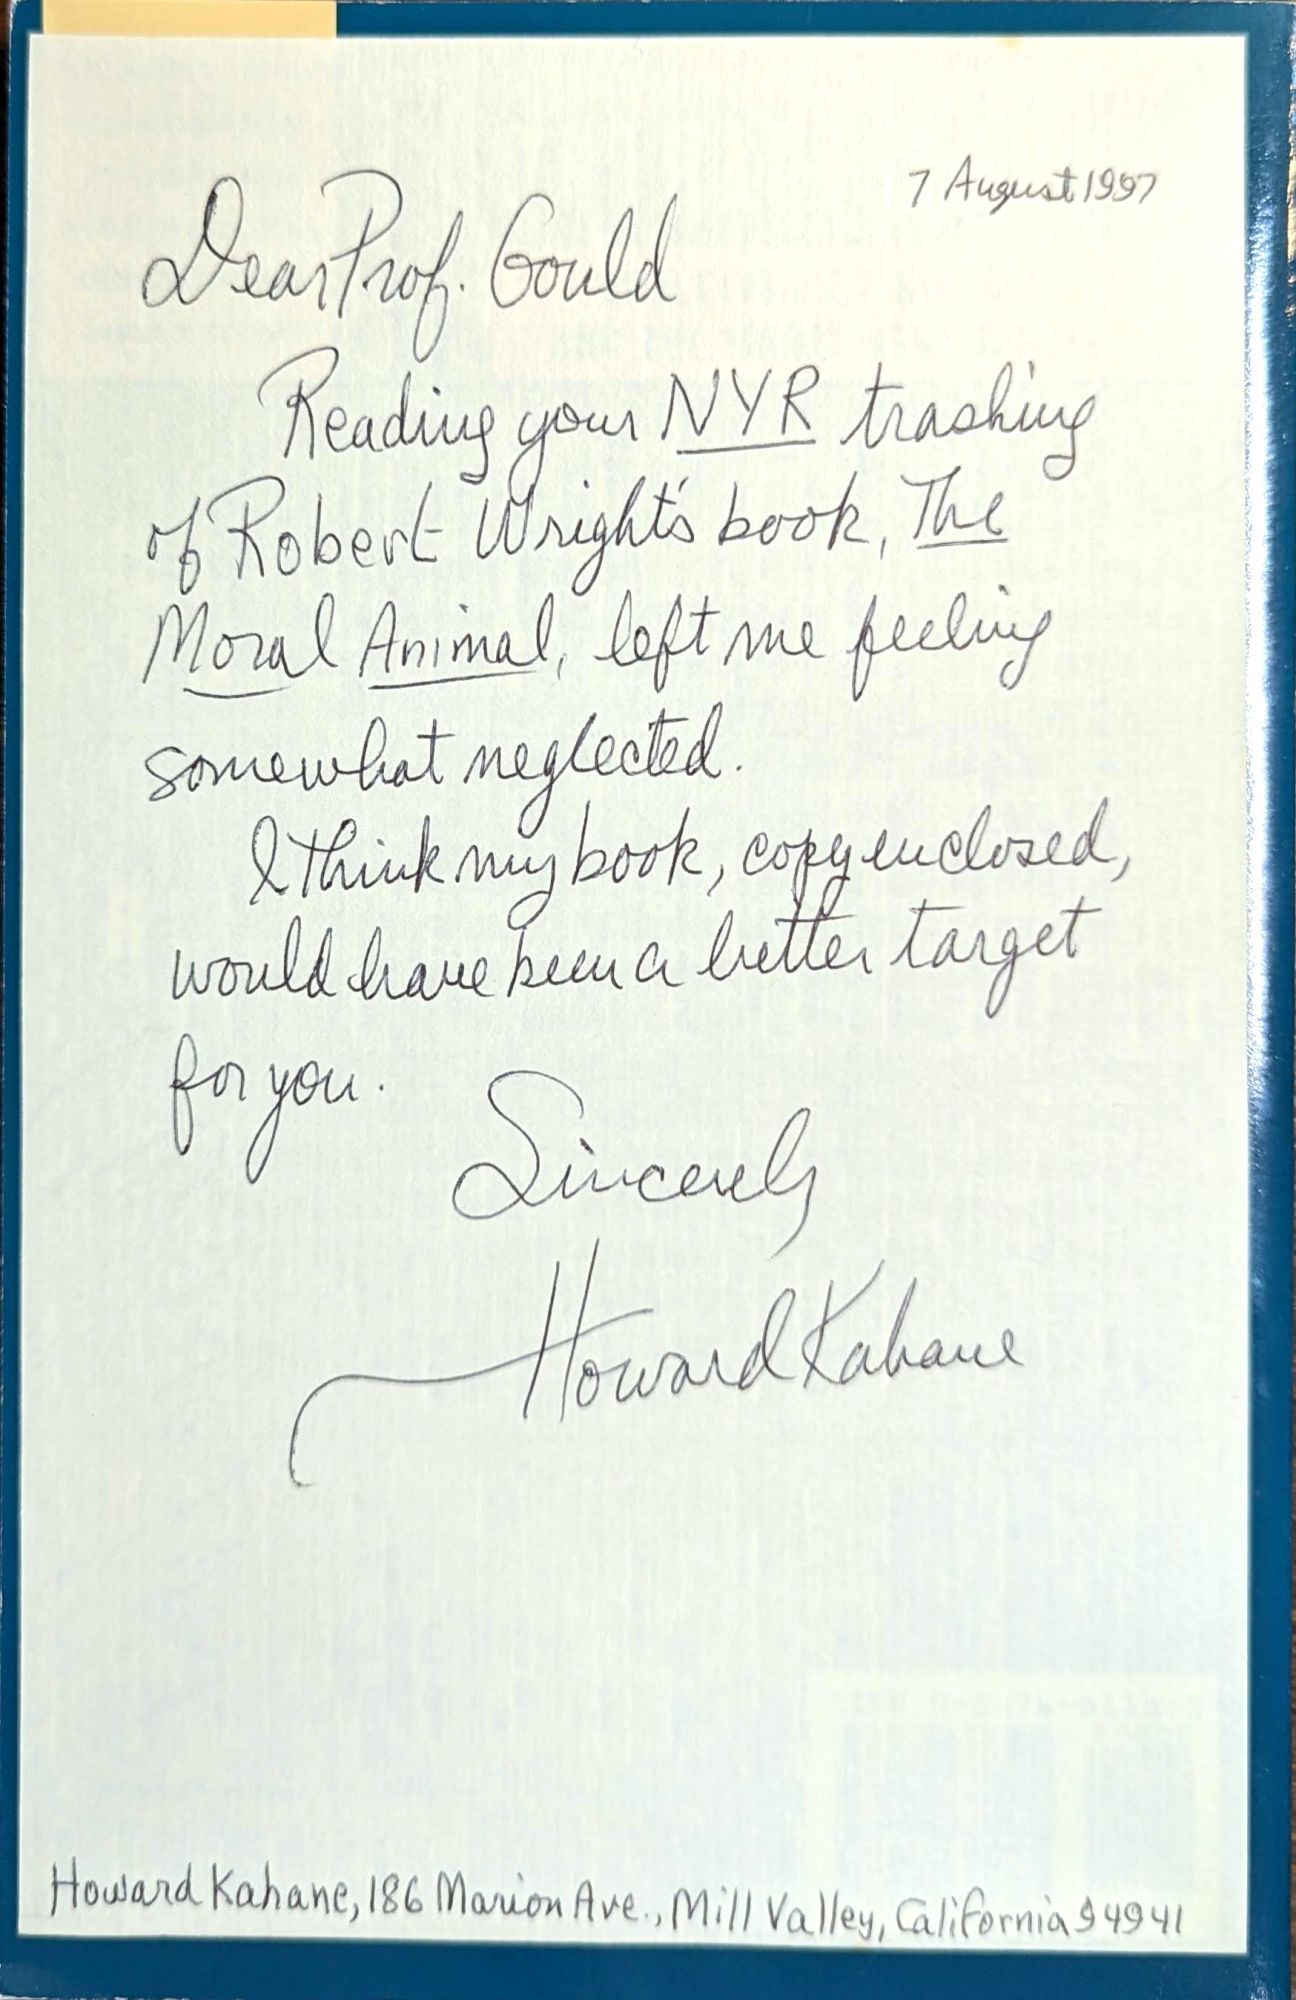 7 August 1997
Dear Prof. Gould
Reading your NYR trashing
of Robert Wright's book, The
Moral Animal, left me feeling
somewhat neglected.
I think my book, copy enclosed,
would have been a better target
for you.
Sincerely
Howard Kahane
Howard Kahane, 186 Marion Ave., Mill Valley, California 94941